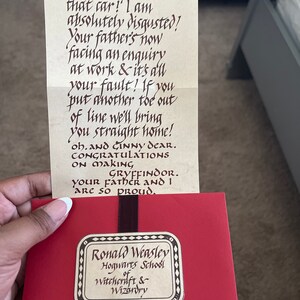 that car! I am
absolutely disgusted!
Your father's now
facing an enquiry
at work & it's all
your fault! If you
put another toe out
of line we'll bring
you straight home!
Oh, and Ginny dear.
CONGRATULATIONS
ON MAKING
GRYFFINDOR.
YOUR FATHER AND I
ARE SO PROUD.
Ronald Weasley
Hogwarts School
of
Witchcraft &
Wizardry